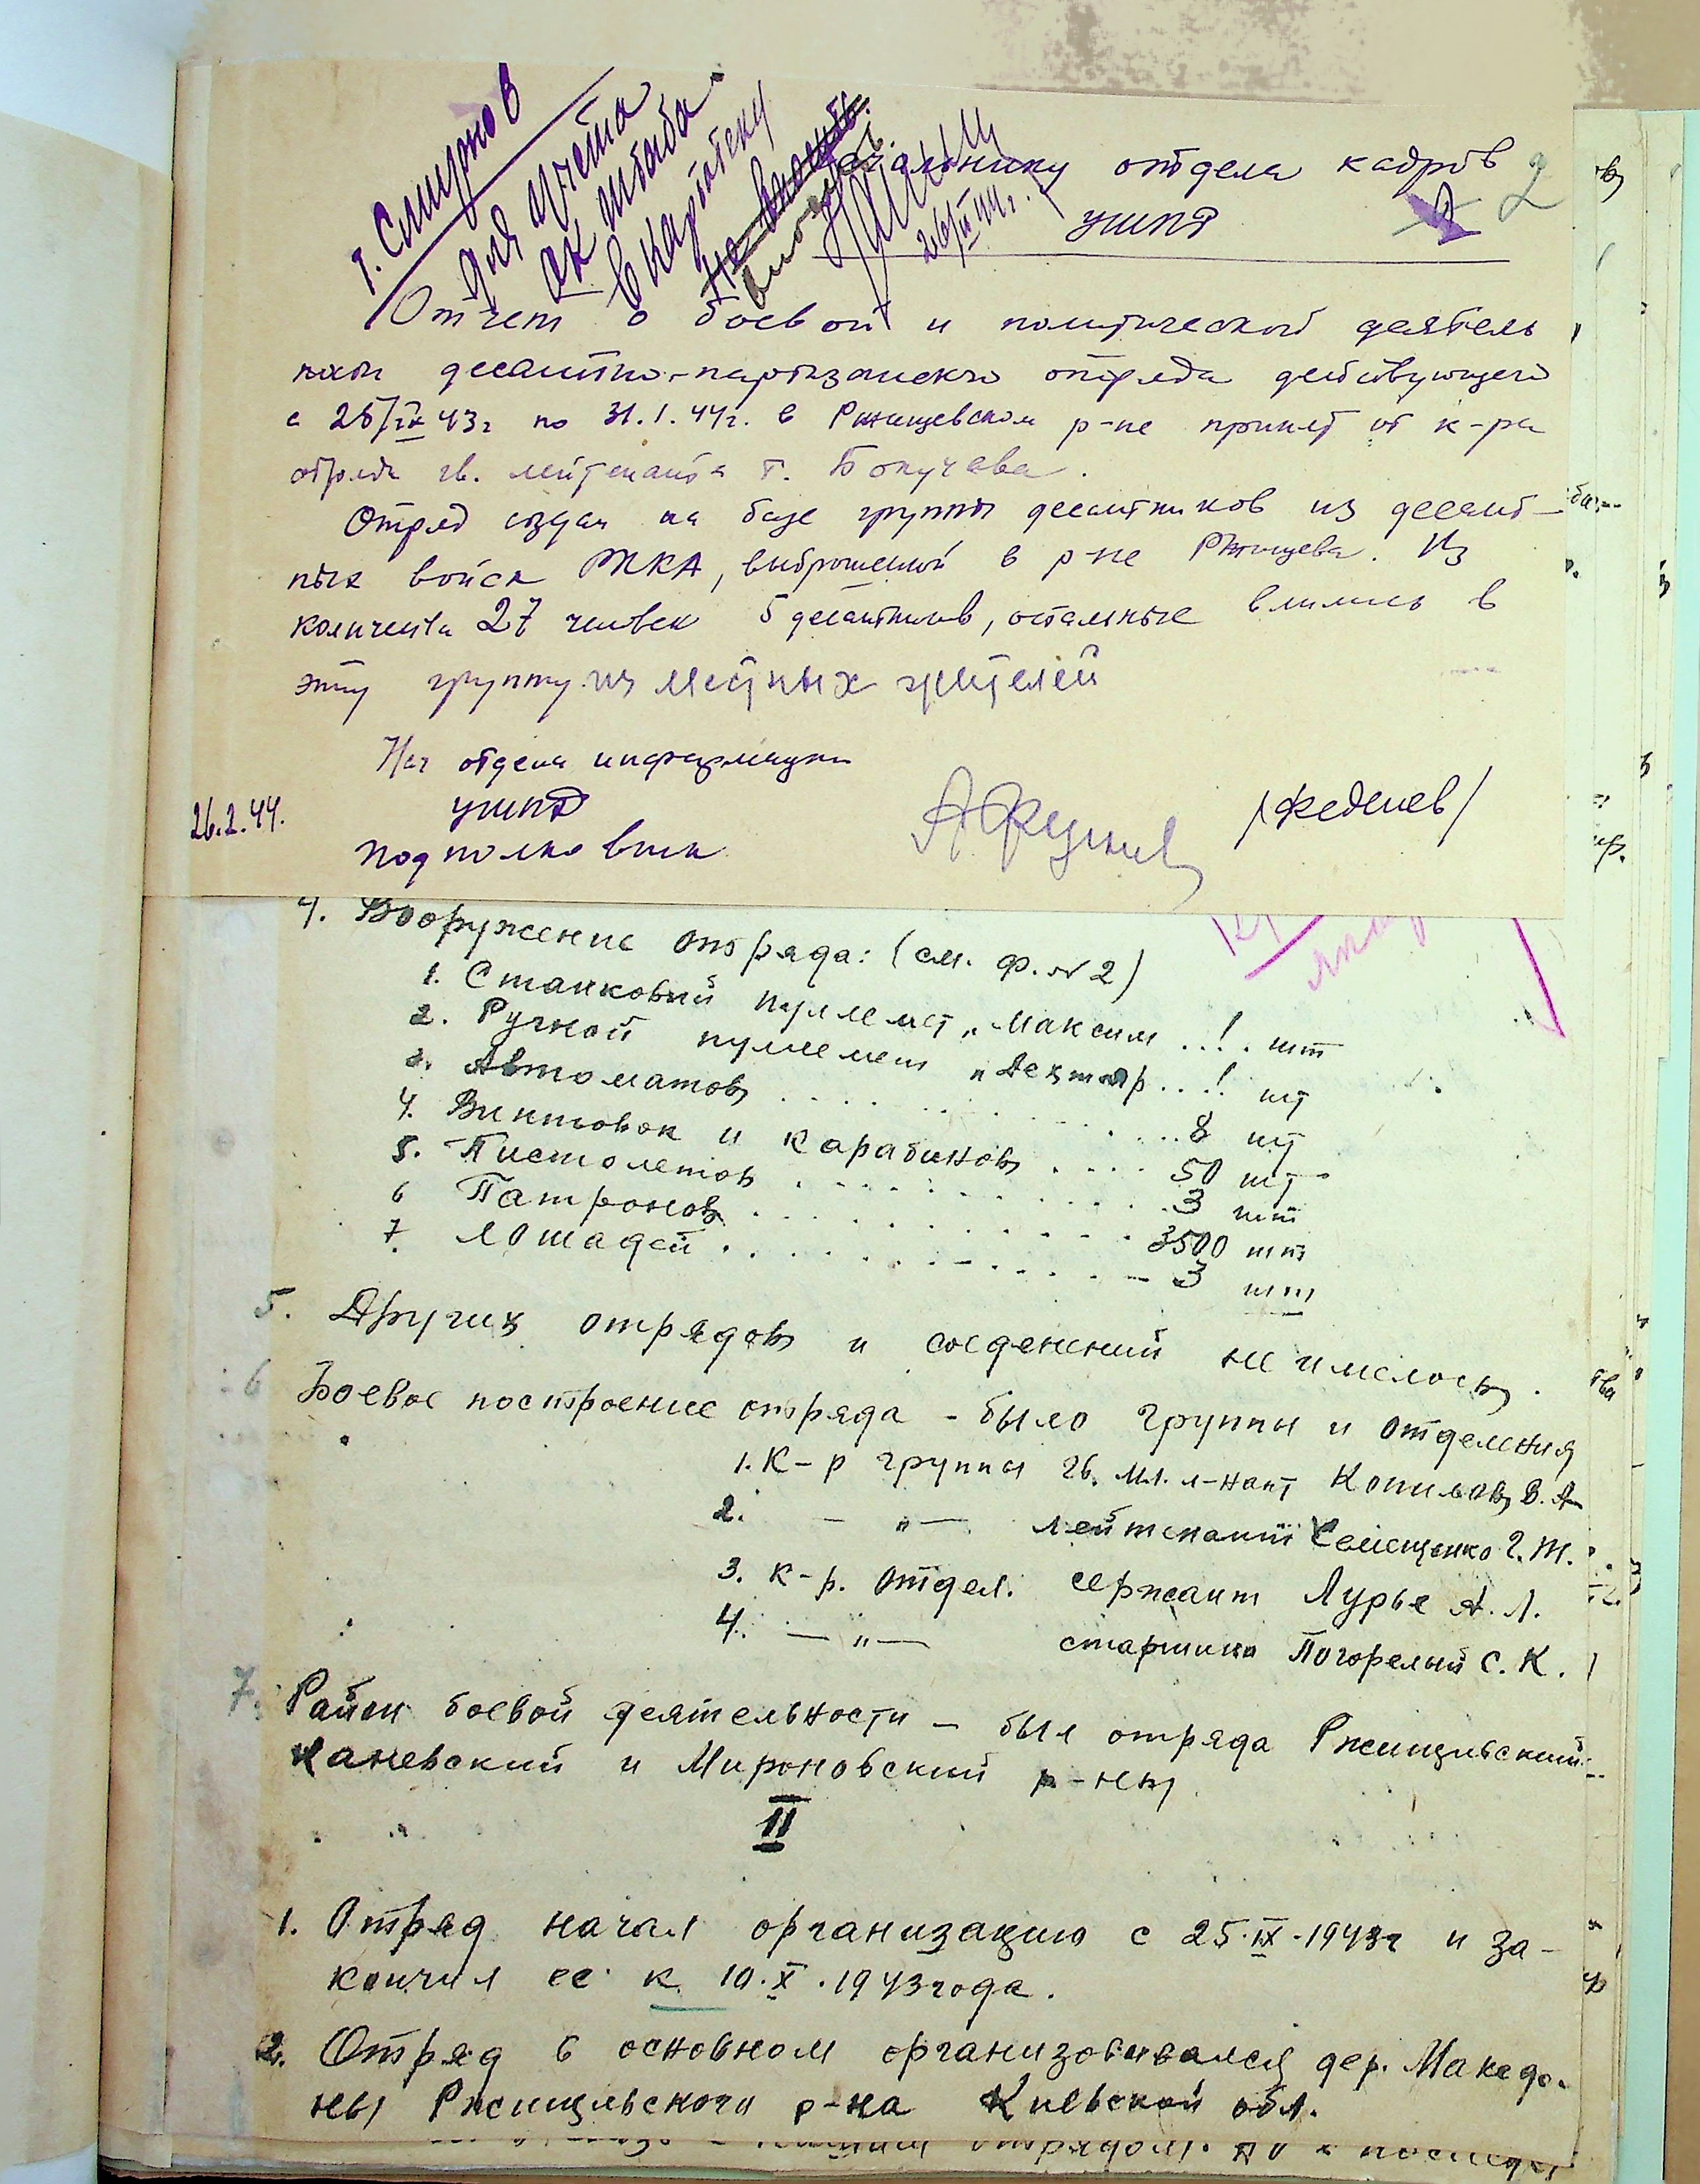 т. Смирнов
для учета
в картотеку
26/II 44 г.
Начальнику отдела кадров
2
УШПД
Отчет о боевой и политической деятель
ности десантно-партизанского отряда действующего
с 25/IX 43 г по 31.1.44 г. в Ржищевском р-не принят от к-ра
отряда гв. лейтенанта т.
Отряд создан на базе группы десантников из десант-
ных войск РККА, выброшенной в р-не Ржищева. Из
количества 27 человек 5 десантников, остальные влились в
эту группу из местных жителей
Нач отдела информации
УШПД
26.2.44.
подполковник
/Феденев/
4. Вооружение отряда: (см. ф. № 2)
1. Станковый пулемет „Максим ..1. шт
2. Ручной пулемет „Дехтяр...1 шт
3. Автоматов ........ 8 шт
4. Винтовок и карабинов .... 50 шт
5. Пистолетов ........ 3 шт
6 Патронов ........ 3500 шт
7. Лошадей ........ 3 шт
5. Других отрядов и соеденений не имелось.
6 Боевое построение отряда - было группы и отделения
1. К-р группы гв. мл. л-нант Копилов В. А
2. — „ — лейтенант Семещенко Г. Т.
3. к-р. отдел. сержант Лурье А. Л.
4. — „ — старшина Погорелый С. К.
7. Район боевой деятельности — был отряда Ржищивский
Каневский и Мироновский р-ны
II
1. Отряд начал организацию с 25.IX.1943г и за-
кончил ее к 10.X.1943 года.
2. Отряд в основном организовивался дер. Македо-
ны Ржищивского р-на Киевской обл.